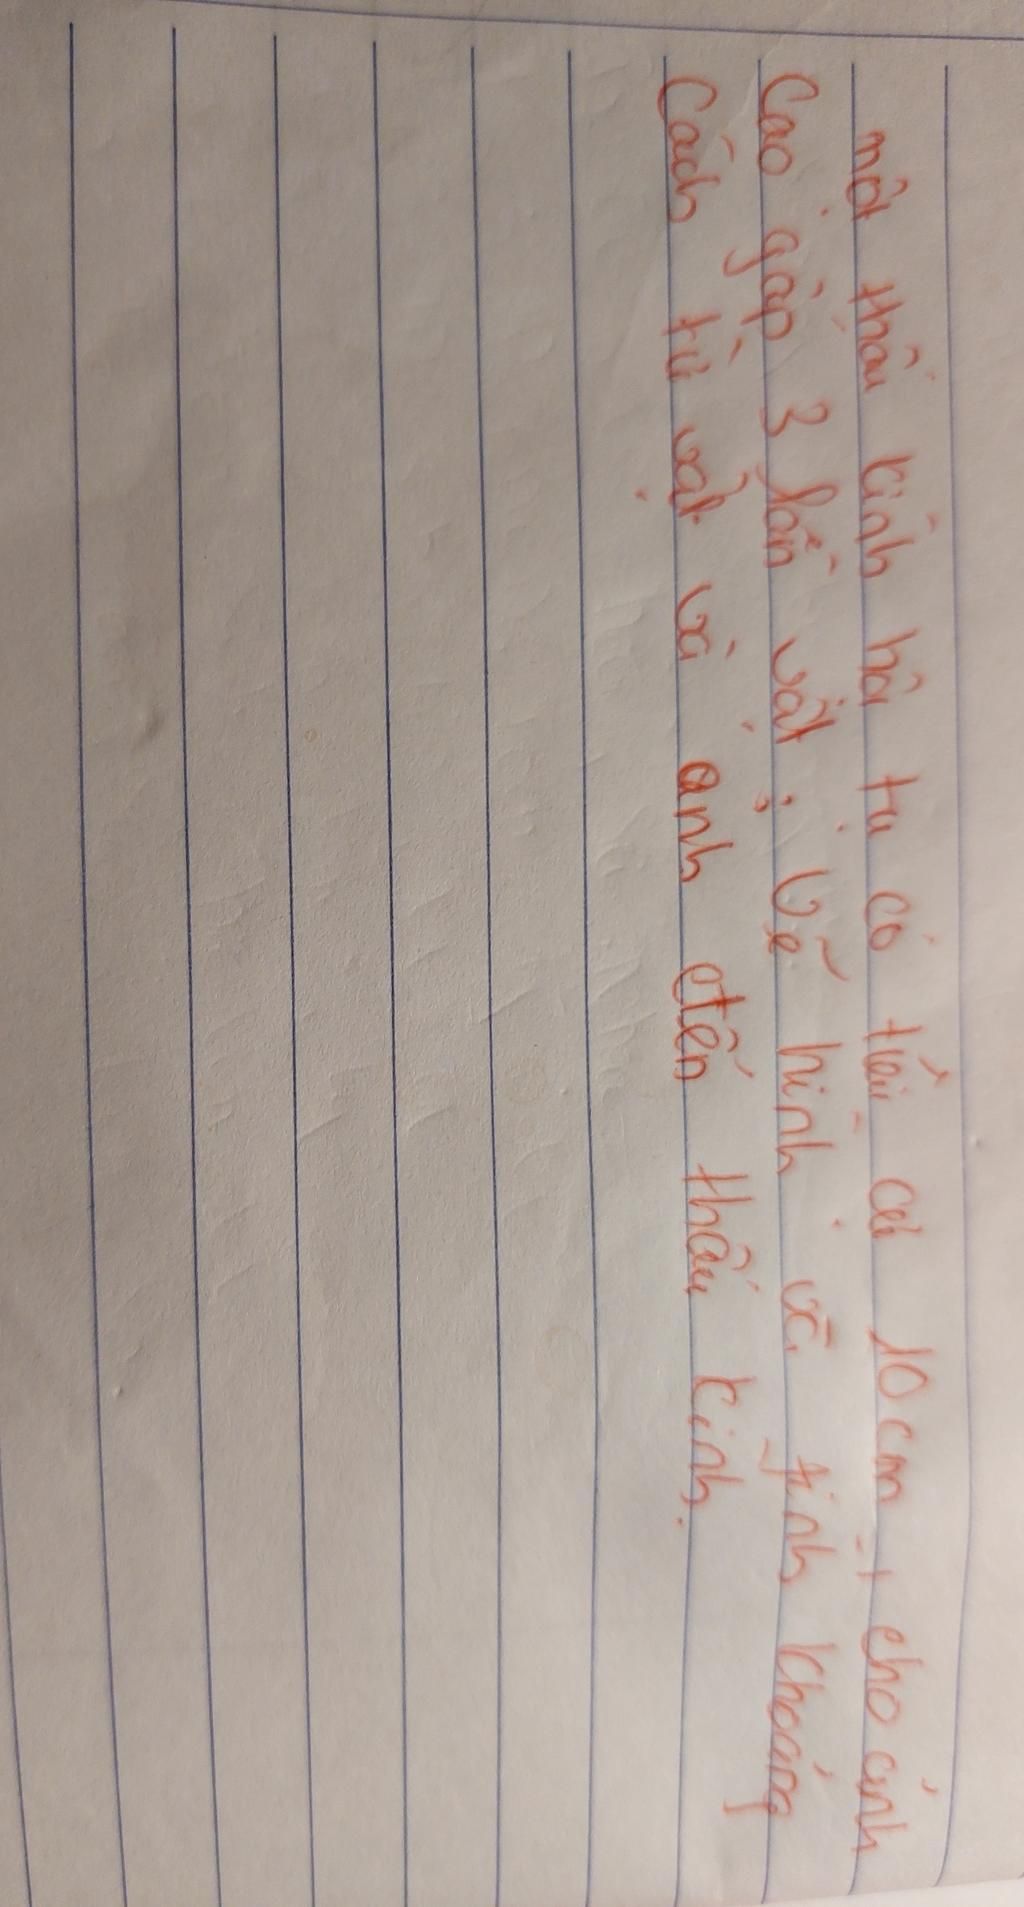 một thấu kính hội tụ có tiêu cự 10 cm, cho ảnh
Cao gấp 3 lần vật; Vẽ hình và tính khoảng
Cách từ vật và ảnh đến thấu kính.